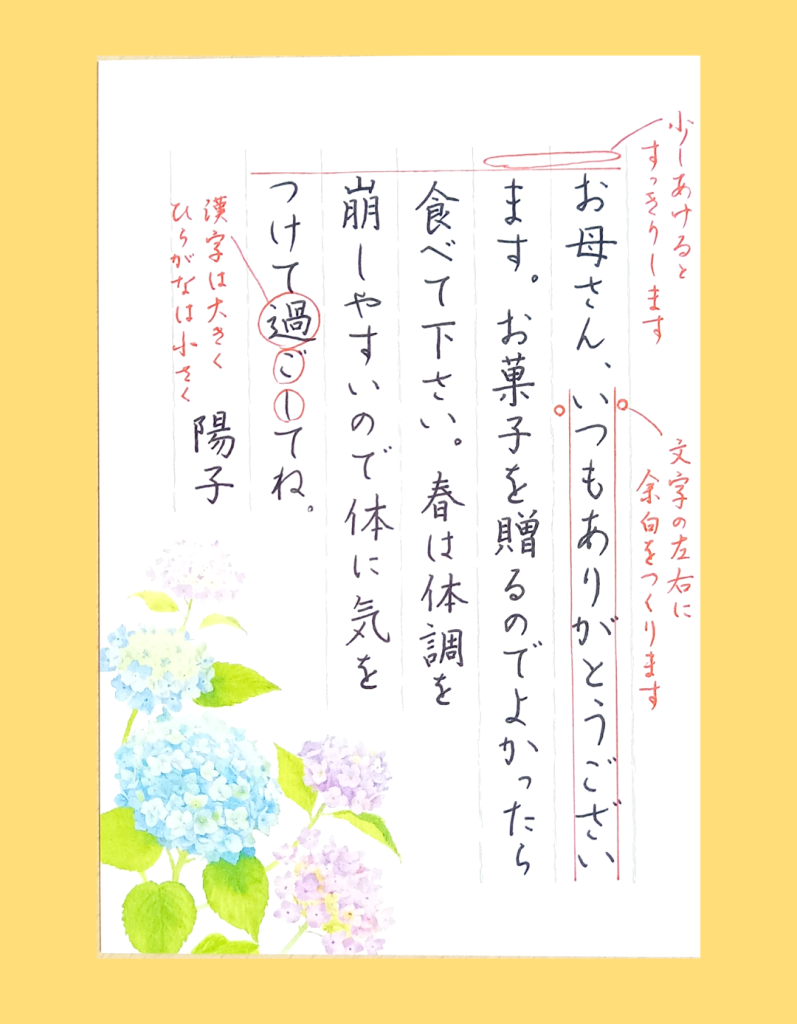 少しあけると
すっきりします
文字の左右に
余白をつくります
お母さん、いつもありがとうござい
ます。お菓子を贈るのでよかったら
食べて下さい。春は体調を
崩しやすいので体に気を
つけて過ごしてね。
陽子
漢字は大きく
ひらがなは小さく